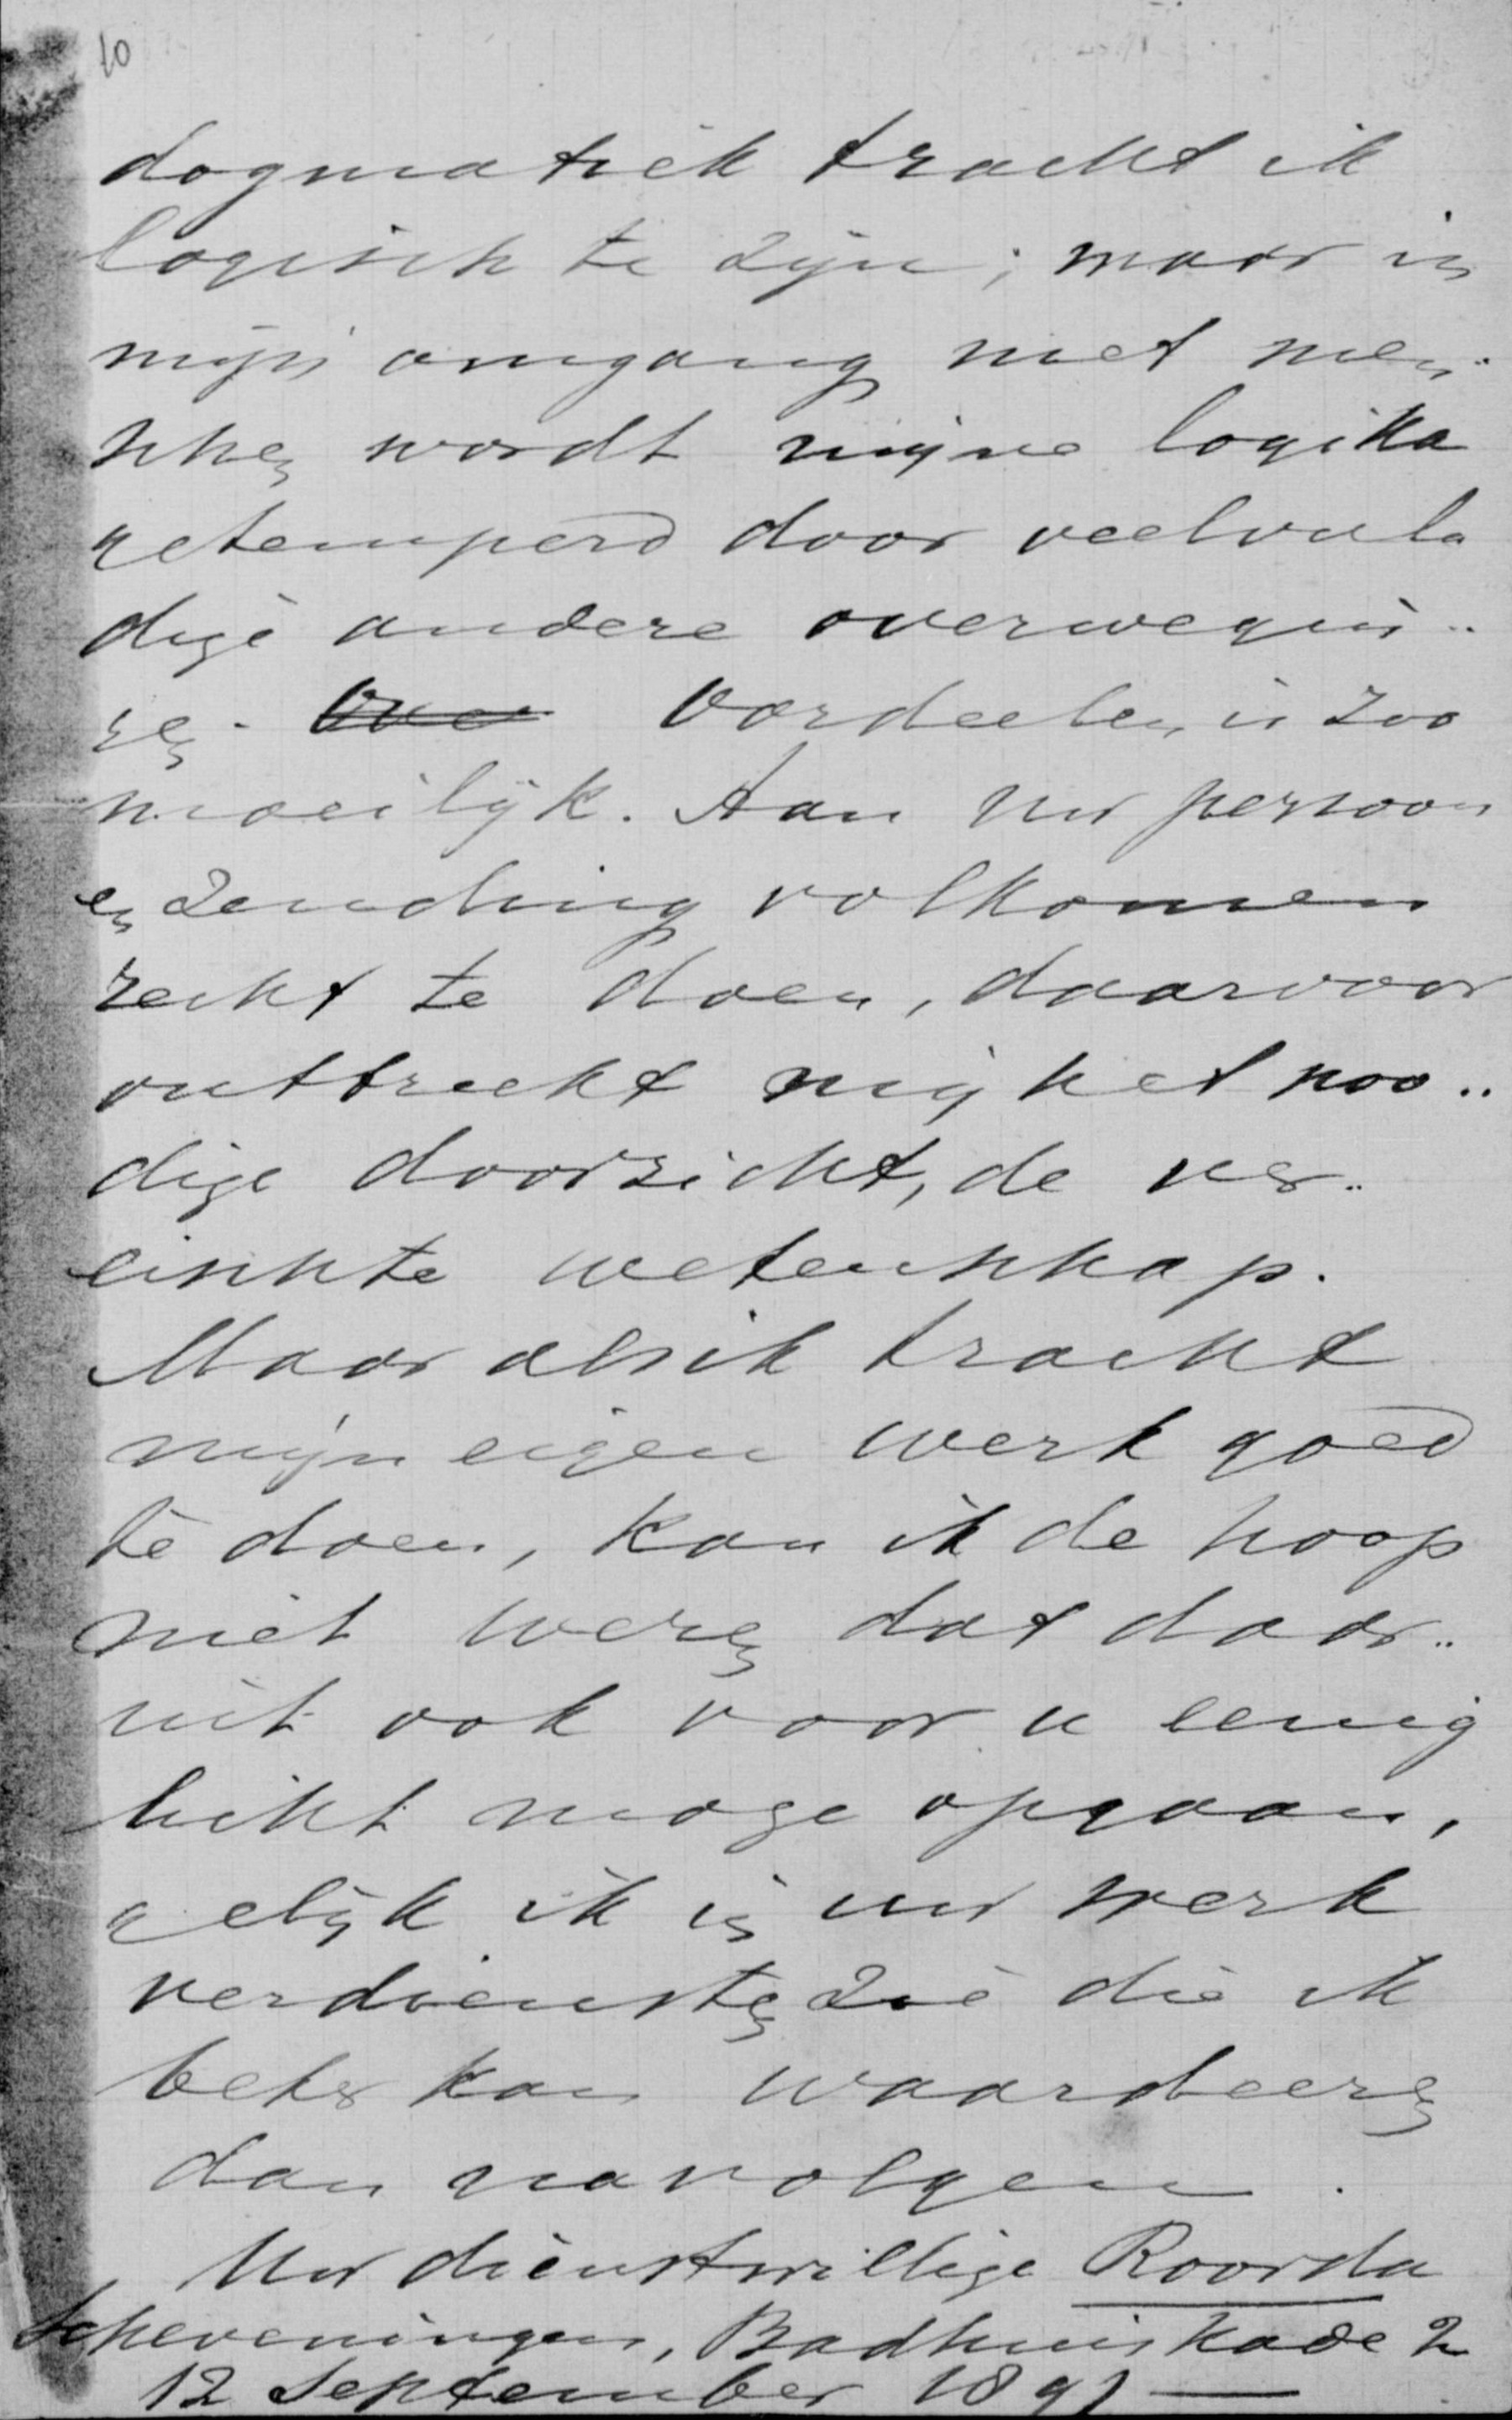 10
dogmatiek tracht ik
logisch te zijn; maar in
mijn omgang met men-
schen wordt mijne logika
getemperd door veelvul-
dige andere overwegin-
gen. Over Oordeelen is zoo
moeilijk. Aan uw persoon
en zending volkomen
recht te doen, daarvoor
onttreekt mij het noo-
dige doorzicht, de ver-
eischte wetenschap.
Maar als ik tracht
mijn eigen werk goed
te doen, kan ik de hoop
niet weren dat daar-
uit ook voor u eenig
licht moge opgaan,
gelijk ik in uw werk
verdiensten zie die ik
beter kan waardeeren
dan navolgen.
Uw dienstwillige Roorda
Scheveningen, Badhuiskade 2
12 September 1891 —